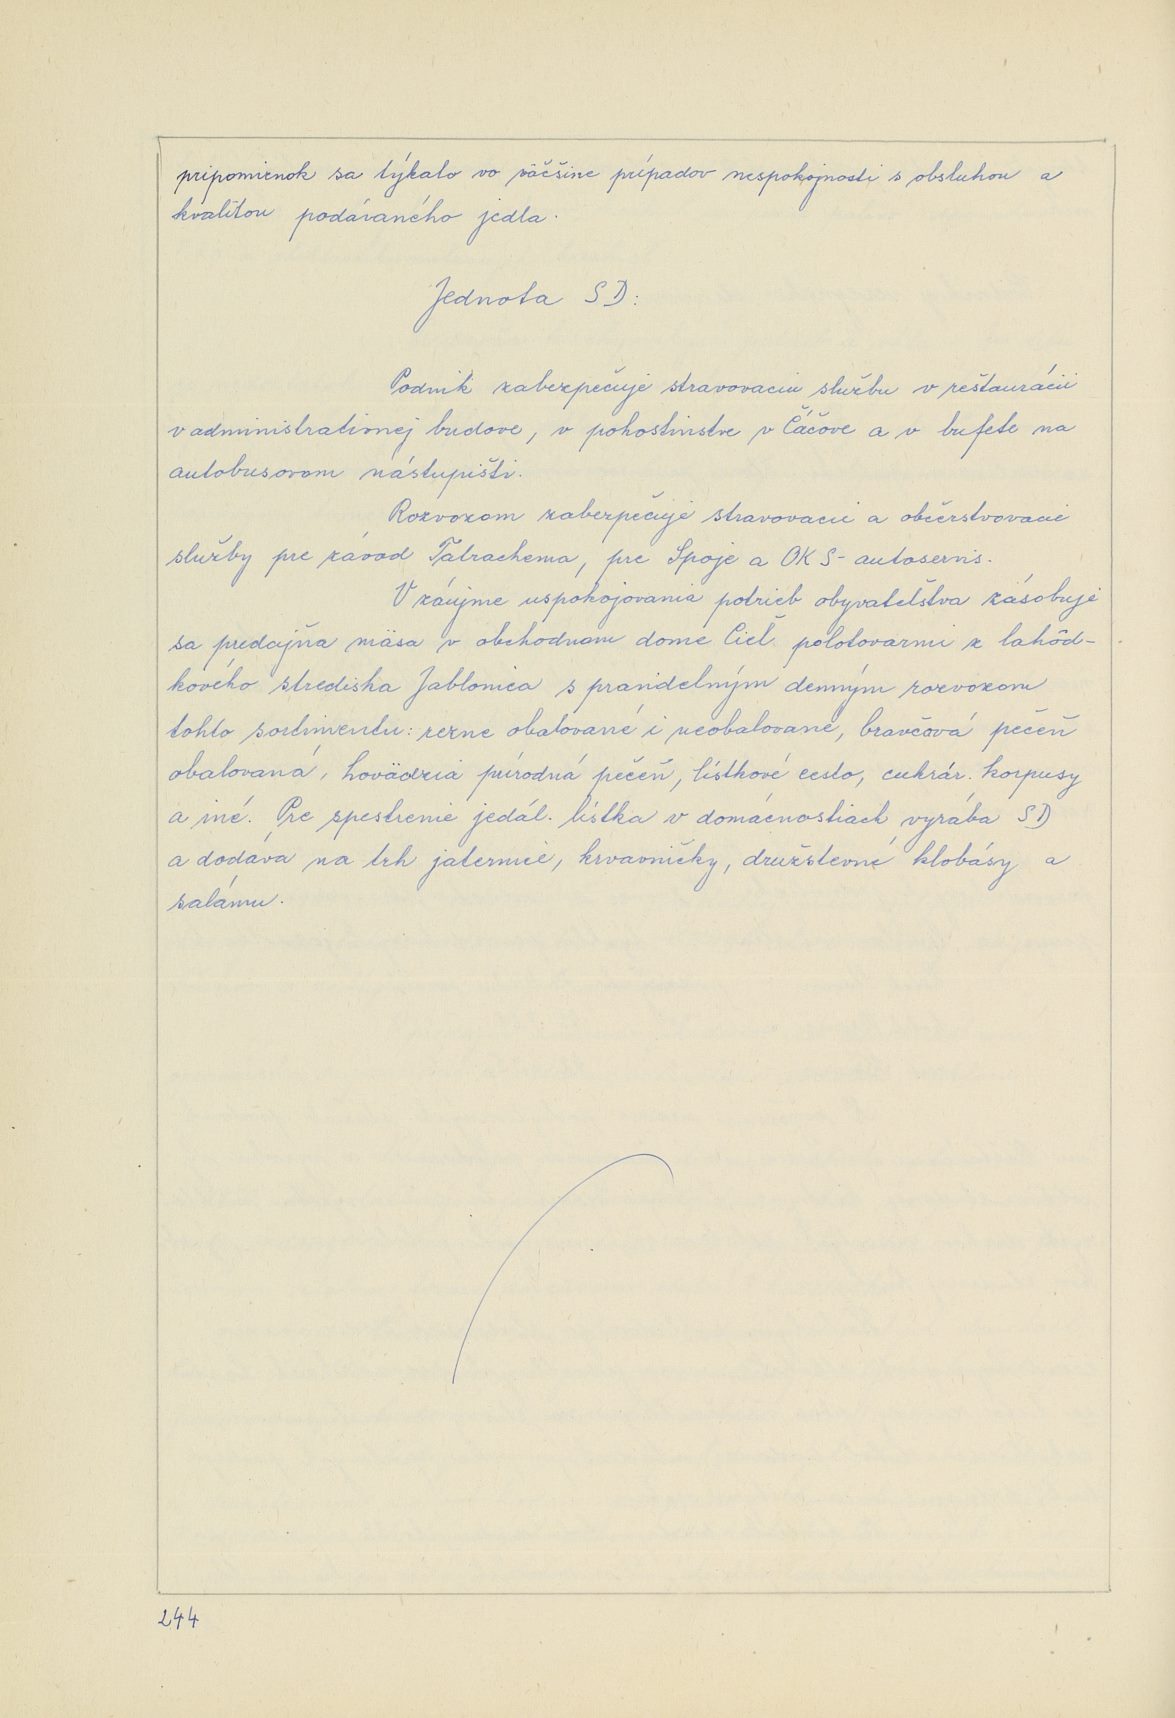 pripomienok sa týkalo vo väčšine prípadov nespokojnosti s obsluhou a
kvalitou podávaného jedla.
Jednota SD:
Podnik zabezpečuje stravovaciu službu v reštaurácii
v administratívnej budove, v pohostinstve v Čáčove a v bufete na
autobusovom nástupišti.
Rozvozom zabezpečuje stravovacie a občerstvovacie
služby pre závod Tatrachema, pre Spoje a OKS - autoservis.
V záujme uspokojovania potrieb obyvateľstva zásobuje
sa predajňa mäsa v obchodnom dome Cieľ polotovarmi z lahôd-
kového strediska Jablonica s pravidelným denným rozvozom
tohto sortimentu: rezne obalované i neobalované, bravčová pečeň
obalovaná, hovädzia prírodná pečeň, lístkové cesto, cukrár. korpusy
a iné. Pre spestrenie jedál. lístka v domácnostiach vyrába SD
a dodáva na trh jaternice, krvavničky, družstevné klobásy a
salámu.
244